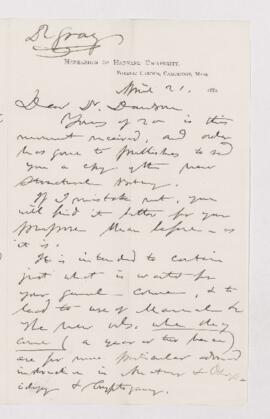 Dr Gray
HERBARIUM OF HARVARD UNIVERSITY,
BOTANIC GARDEN, CAMBRIDGE, MASS.
April 21, 1880
Dear Dr. Dawson
Yours of 20 is this
moment received, and order
has gone to publishers to send
you a copy of the new
Structural Botany.
If I mistake not, you
will find it better for your
purpose than before – as
it is.
It is intended to contain
just what is wanted for
your general course, & to
lead to use of Manual &c
The new vols. when they
come (a year or two hence)
are for more particular advanced
instruction in &
& Cryptogamy.